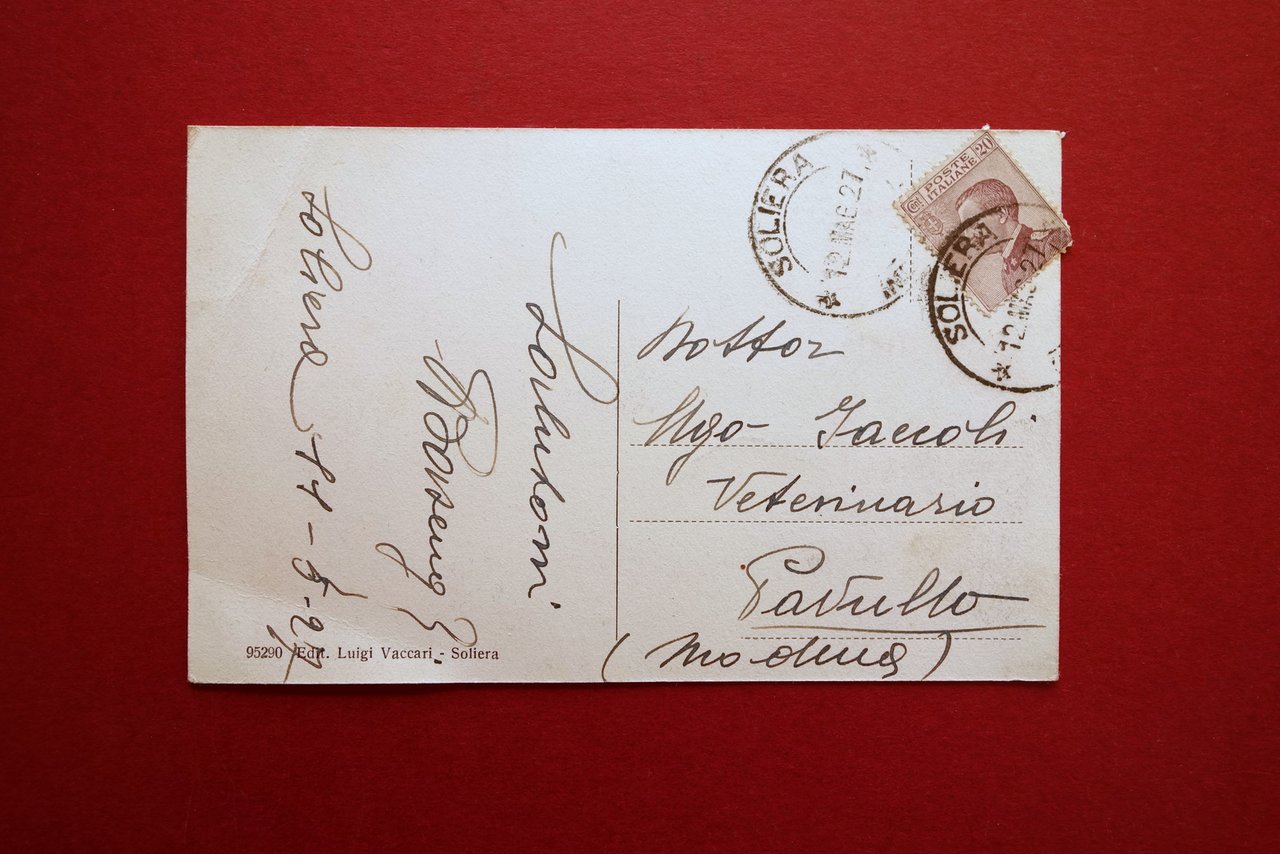 SOLIERA
12. MAG. 27.
POSTE
ITALIANE
20
Cent
SOLIERA
12. MAG. 27
Dottor
Ugo Jaccoli
Veterinario
Pavullo
(Modena)
Salutoni
11-5-27
95290 Edit. Luigi Vaccari - Soliera